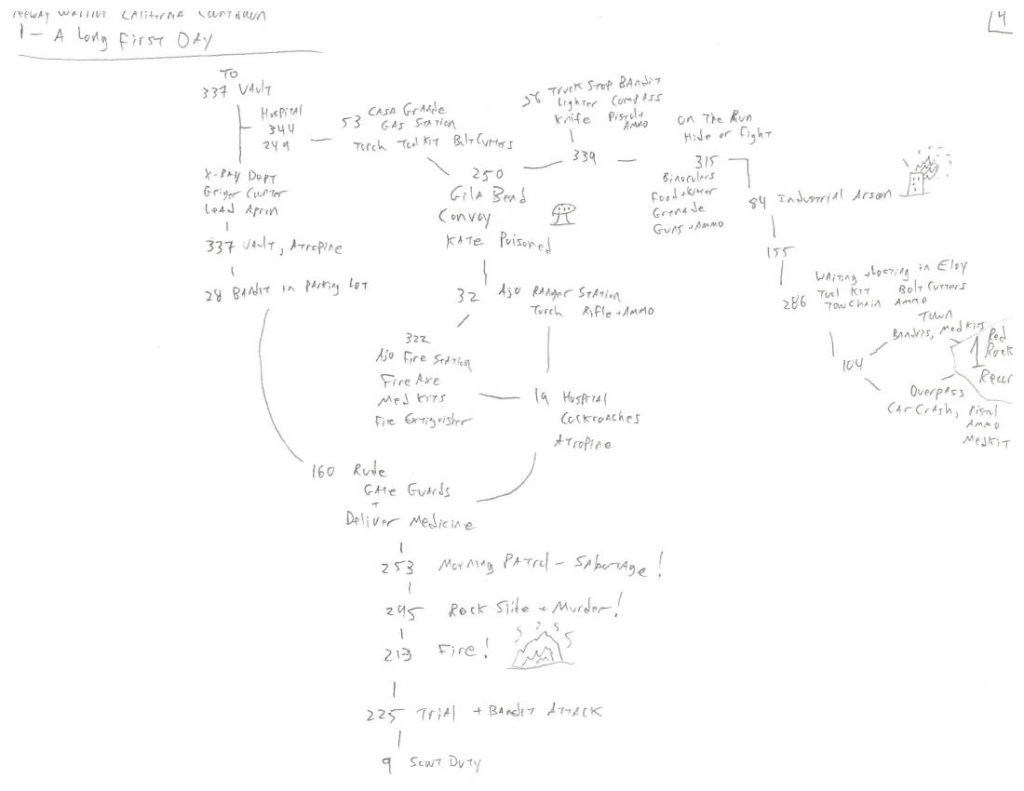 Freeway Warrior California Countdown
1 - A Long First Day
4
To
337 Vault
Hospital
344
249
53 Casa Grande
Gas Station
Torch Tool Kit Bolt Cutters
56 Truck Stop Bandit
Lighter Compass
Knife Pistol +
Ammo
339
On The Run
Hide or Fight
315
Binoculars
Food +
Grenade
Guns + Ammo
84 Industrial Arson
155
Waiting + Looting in Eloy
286 Tool Kit Bolt Cutters
Tow Chain Ammo
104
Town
Bandits, Med Kits
1 Red
Rock
Overpass
Car Crash, Pistol
Ammo
MedKit
X-Ray Dept
Geiger Counter
Lead Apron
337 Vault, Atropine
28 Bandit in Parking Lot
250
Gila Bend
Convoy
Kate Poisoned
32 Ajo Ranger Station
Torch Rifle + Ammo
322
Ajo Fire Station
Fire Axe
Med Kits
Fire Extinguisher
19 Hospital
Cockroaches
Atropine
160 Rude
Gate Guards
+
Deliver Medicine
253 Morning Patrol - Sabotage!
295 Rock Slide + Murder!
213 Fire!
225 Trial + Bandit Attack
9 Scout Duty